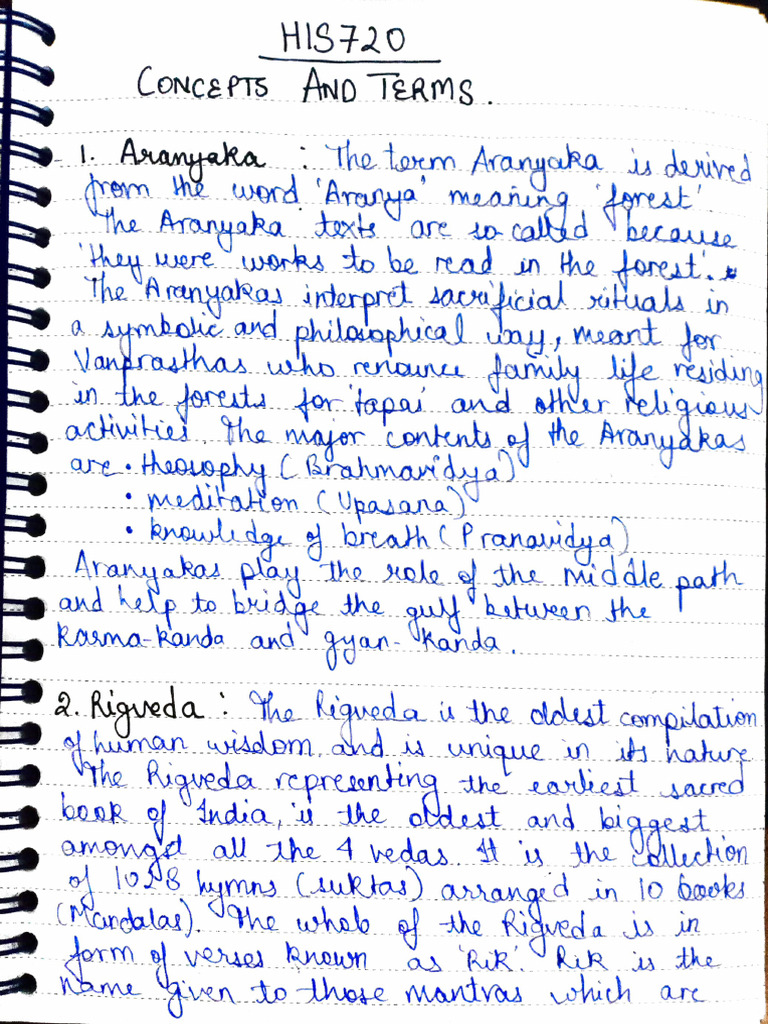 HIS720
CONCEPTS AND TERMS.
1. Aranyaka : The term Aranyaka is derived
from the word 'Aranya' meaning 'forest'.
The Aranyaka texts are so called because
'they were works to be read in the forest'.
The Aranyakas interpret sacrificial rituals in
a symbolic and philosophical way, meant for
Vanprasthas who renounce family life residing
in the forests for 'tapas' and other religious
activities. The major contents of the Aranyakas
are • theosophy (Brahmavidya)
• meditation (Upasana)
• knowledge of breath (Pranavidya)
Aranyakas play the role of the middle path
and help to bridge the gulf between the
Karma-kanda and gyan-kanda.
2. Rigveda : The Rigveda is the oldest compilation
of human wisdom and is unique in its nature
The Rigveda representing the earliest sacred
book of India, is the oldest and biggest
amongst all the 4 vedas. It is the collection
of 1028 hymns (suktas) arranged in 10 books
(Mandalas). The whole of the Rigveda is in
form of verses known as 'Rik'. Rik is the
name given to those mantras which are